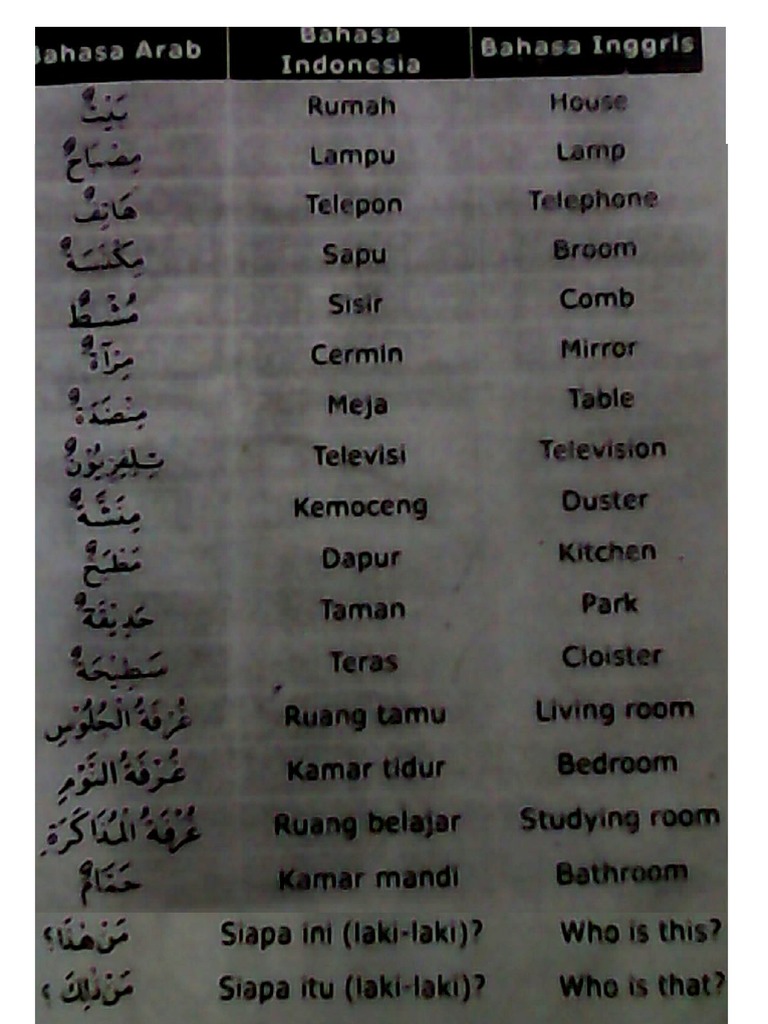 Bahasa Arab Bahasa Indonesia Bahasa Inggris
بَيْتٌ Rumah House
مِصْبَاحٌ Lampu Lamp
هَاتِفٌ Telepon Telephone
مِكْنَسَةٌ Sapu Broom
مُشْطٌ Sisir Comb
مِرْآةٌ Cermin Mirror
مِنْضَدَةٌ Meja Table
تِلِفِزِيُوْنٌ Televisi Television
مِنَشَّةٌ Kemoceng Duster
مَطْبَخٌ Dapur Kitchen
حَدِيْقَةٌ Taman Park
سَطِيْحَةٌ Teras Cloister
غُرْفَةُ الْجُلُوْسِ Ruang tamu Living room
غُرْفَةُ النَّوْمِ Kamar tidur Bedroom
غُرْفَةُ الْمُذَاكَرَةِ Ruang belajar Studying room
حَمَّامٌ Kamar mandi Bathroom
مَنْ هٰذَا؟ Siapa ini (laki-laki)? Who is this?
مَنْ ذٰلِكَ ؟ Siapa itu (laki-laki)? Who is that?